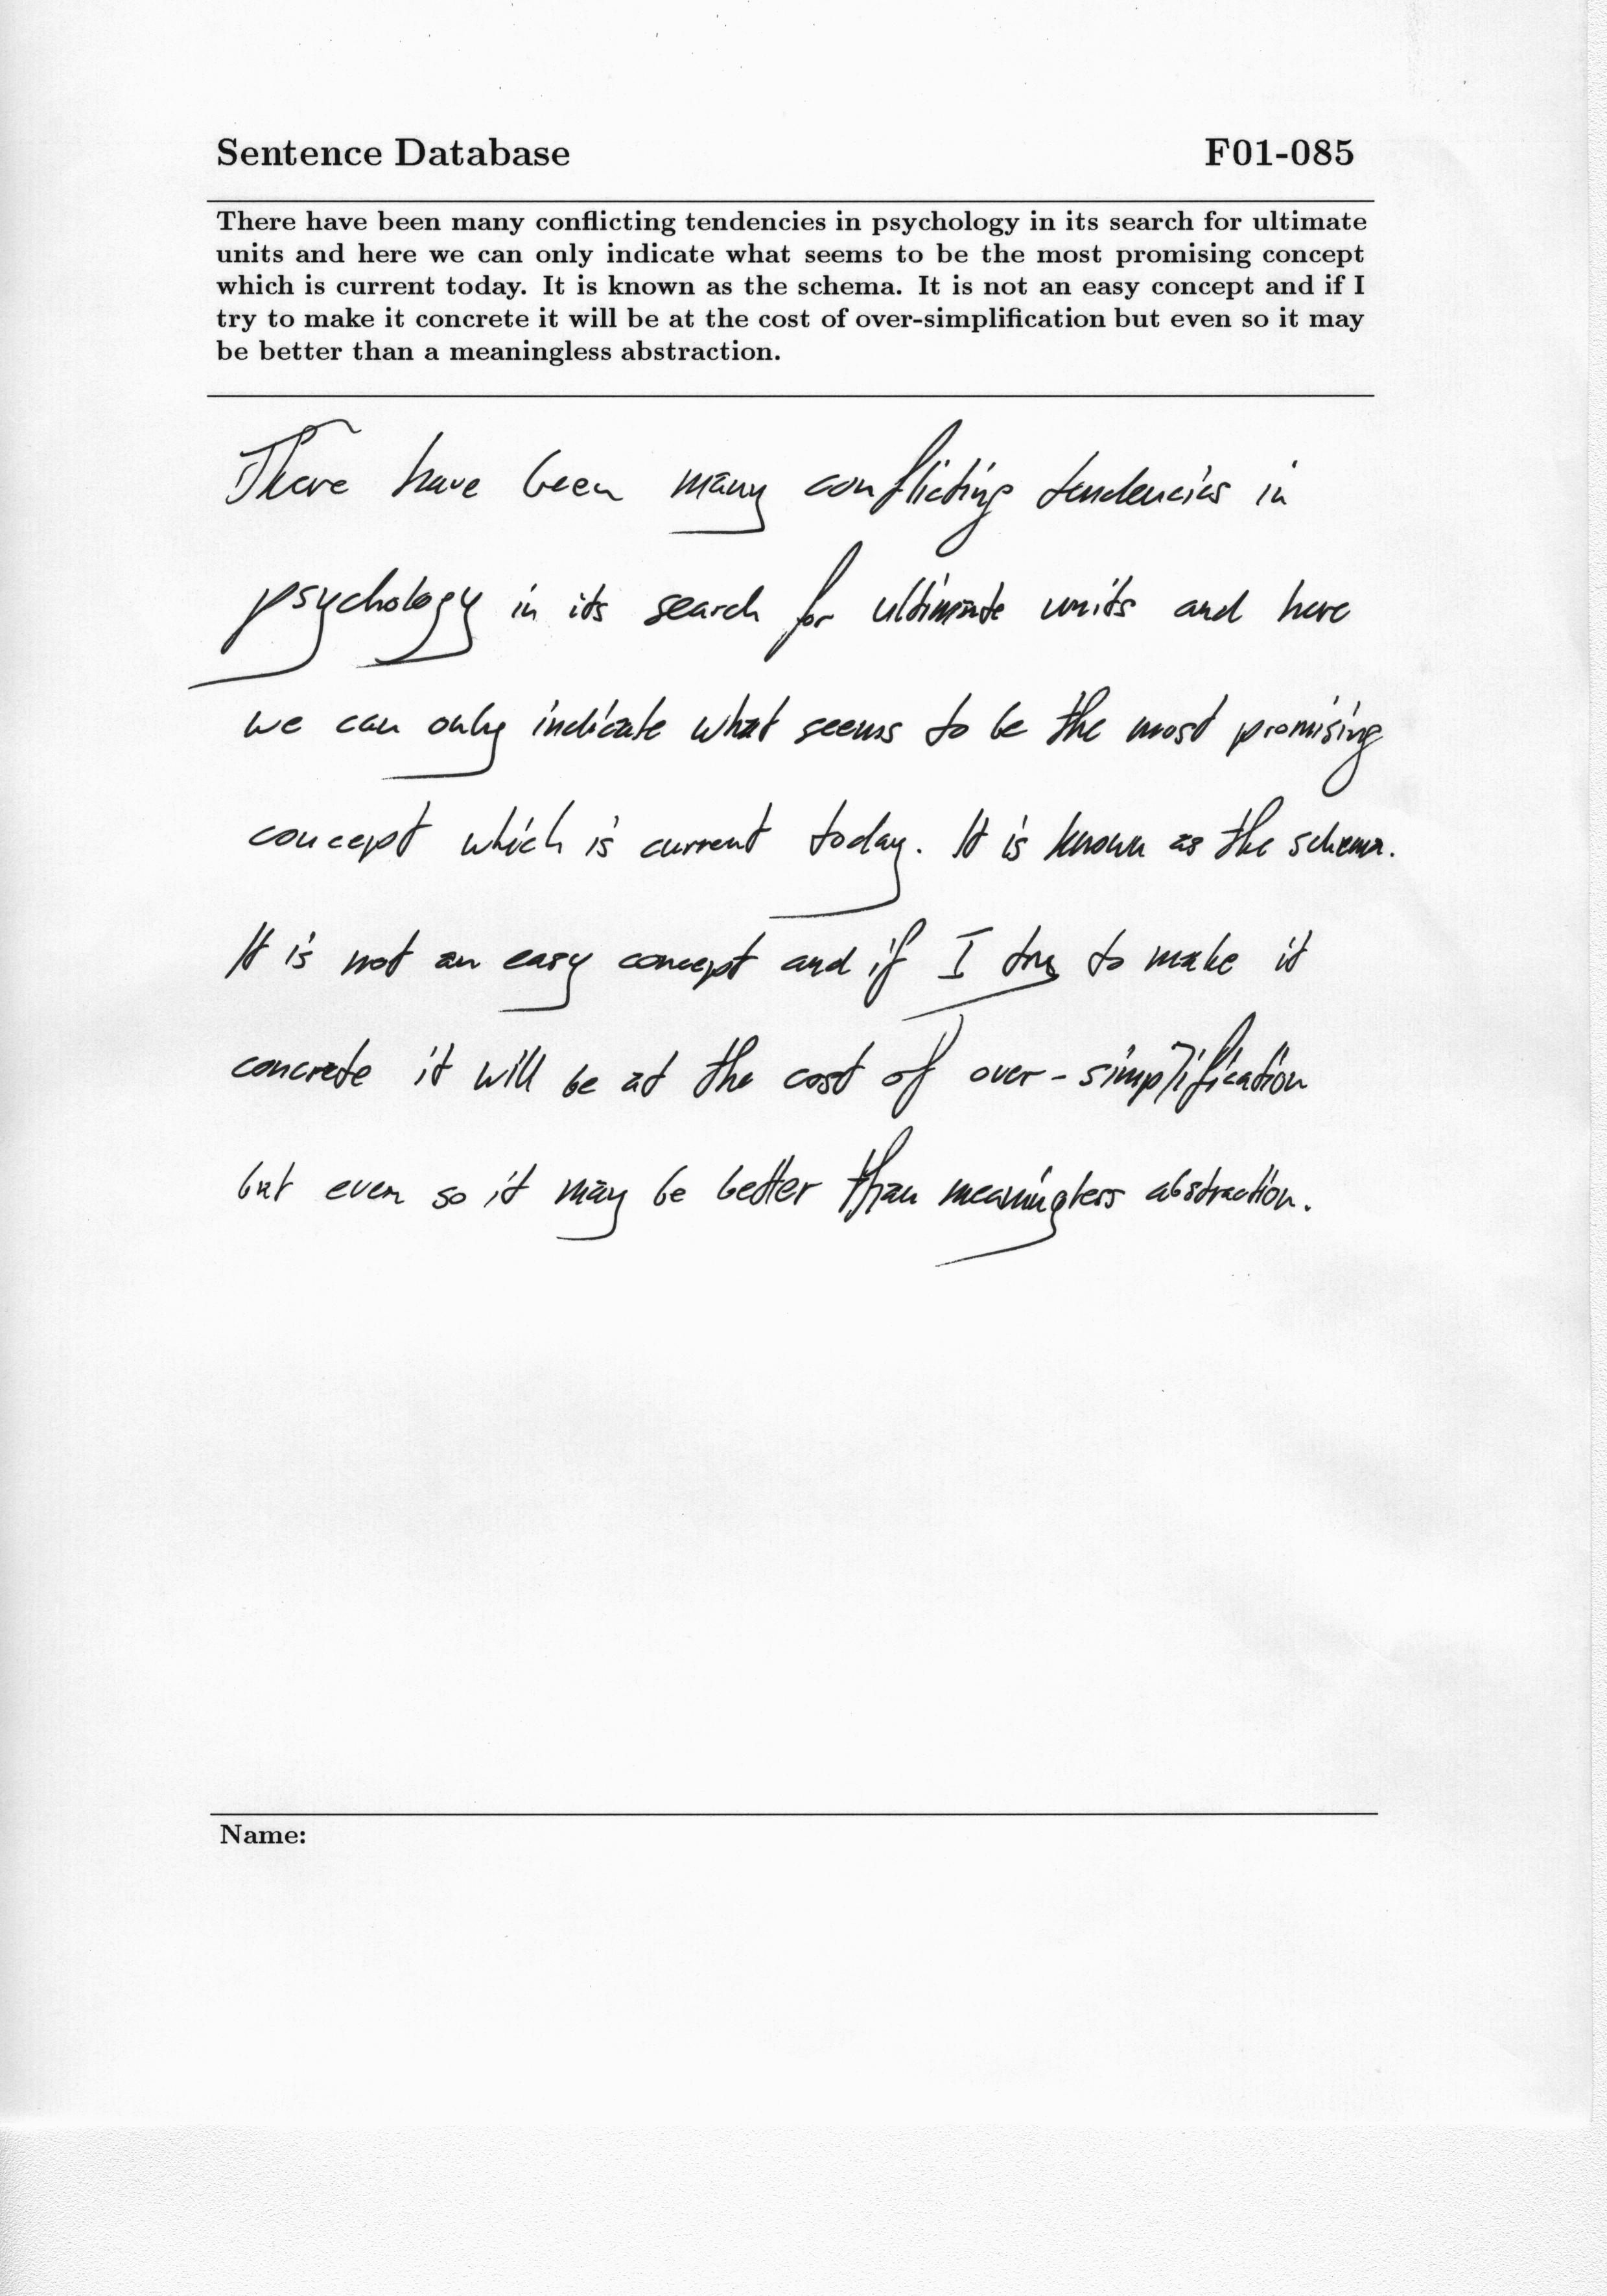 Sentence Database F01-085
There have been many conflicting tendencies in psychology in its search for ultimate
units and here we can only indicate what seems to be the most promising concept
which is current today. It is known as the schema. It is not an easy concept and if I
try to make it concrete it will be at the cost of over-simplification but even so it may
be better than a meaningless abstraction.
There have been many conflicting tendencies in
psychology in its search for ultimate units and here
we can only indicate what seems to be the most promising
concept which is current today. It is known as the schema.
It is not an easy concept and if I try to make it
concrete it will be at the cost of over-simplification
but even so it may be better than meaningless abstraction.
Name: